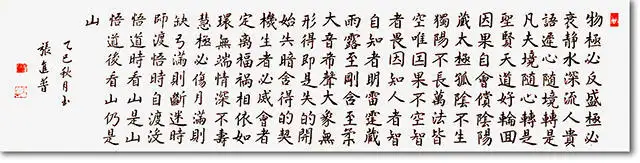 物極必反盛極必
衰静水深流人貴
語遲心隨境轉是
凡夫境隨心轉是
聖賢天道好輪回
因果自會償陰陽
蔵太極孤陰不生
獨陽不長萬法皆
空唯因果不空智
者畏因知人者智
自知者明雷霆蔵
雨露至剛含至柔
大音希聲大象無
形得即是失的開
始失暗含得的契
機生者必滅會者
定離福禍相依如
環無端情深不壽
慧極必傷月滿則
缺弓滿則斷迷時
師渡悟時自渡没
悟道時看山是山
悟道後看山仍是
山
乙巳秋月书
張進